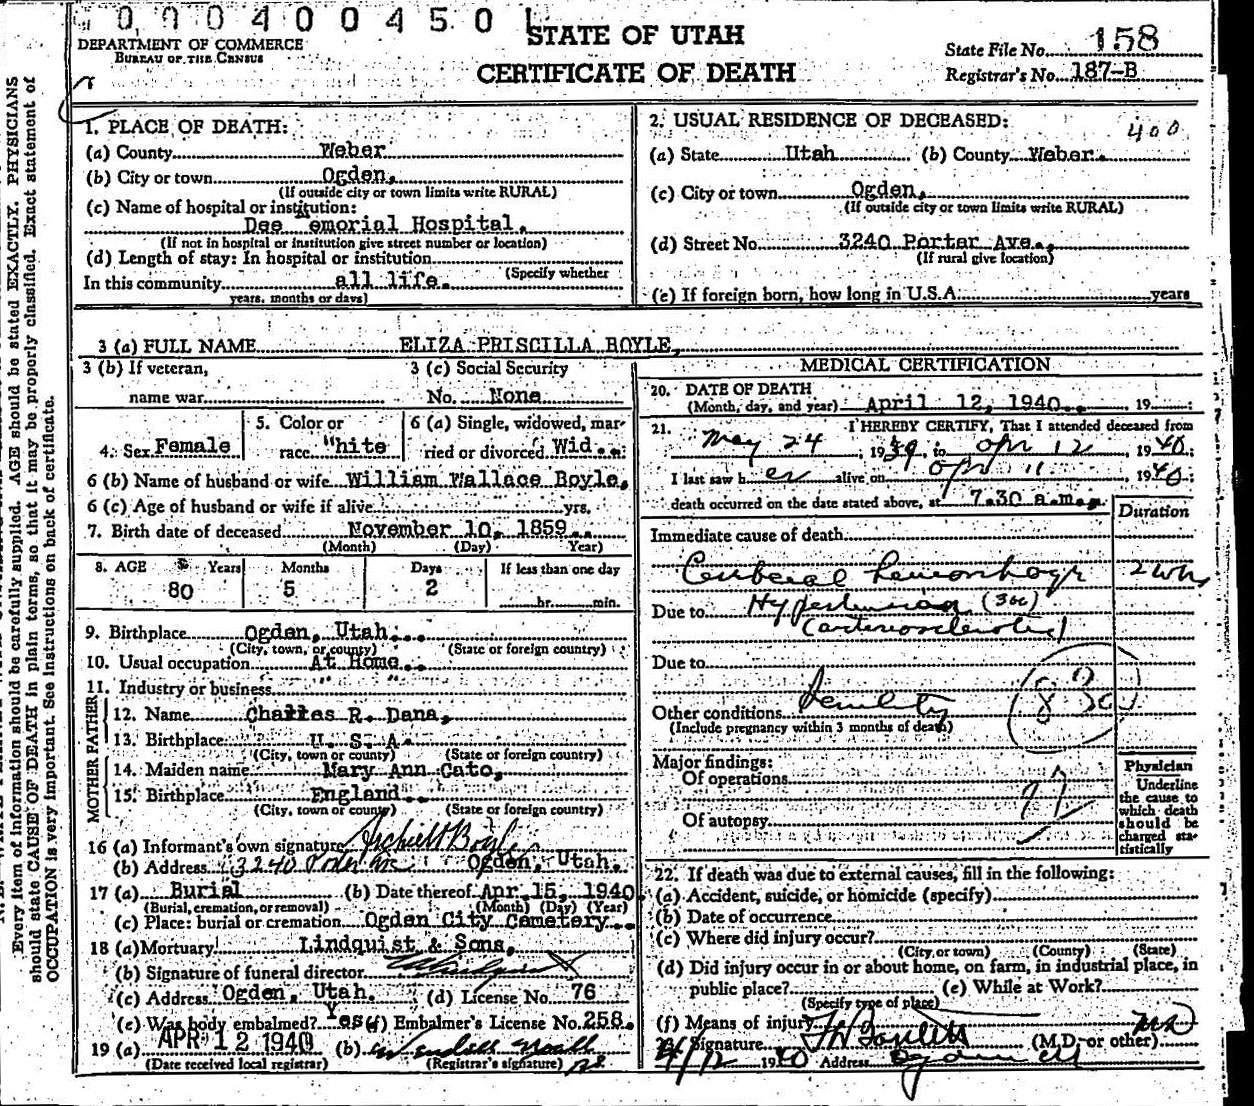 000400450 L
STATE OF UTAH
DEPARTMENT OF COMMERCE
BUREAU OF THE CENSUS
CERTIFICATE OF DEATH
State File No. 158
Registrar's No. 187-B
Every item of information should be carefully supplied. AGE should be stated EXACTLY. PHYSICIANS
should state CAUSE OF DEATH in plain terms, so that it may be properly classified. Exact statement of
OCCUPATION is very important. See instructions on back of certificate.
1. PLACE OF DEATH:
(a) County Weber
(b) City or town Ogden,
(If outside city or town limits write RURAL)
(c) Name of hospital or institution:
Dee emorial Hospital.
(If not in hospital or institution give street number or location)
(d) Length of stay: In hospital or institution
(Specify whether
In this community all life.
years, months or days)
2. USUAL RESIDENCE OF DECEASED: 400
(a) State Utah (b) County Weber.
(c) City or town Ogden,
(If outside city or town limits write RURAL)
(d) Street No. 3240 Porter Ave.,
(If rural give location)
(e) If foreign born, how long in U.S.A. years
3 (a) FULL NAME ELIZA PRISCILLA BOYLE,
3 (b) If veteran,
name war
3 (c) Social Security
No. None
4. Sex Female
5. Color or
race "hite
6 (a) Single, widowed, mar-
ried or divorced Wid..
6 (b) Name of husband or wife William Wallace Boyle,
6 (c) Age of husband or wife if alive yrs.
7. Birth date of deceased November 10, 1859
(Month) (Day) Year)
8. AGE Years Months Days If less than one day
80 5 2 hr. min.
9. Birthplace Ogden, Utah
(City, town, or county) (State or foreign country)
10. Usual occupation At Home
11. Industry or business " "
FATHER
12. Name Charles R. Dana,
13. Birthplace U. S. A.
(City, town or county) (State or foreign country)
MOTHER
14. Maiden name Mary Ann Cato,
15. Birthplace England
(City, town or county) (State or foreign country)
16 (a) Informant's own signature Boyle
(b) Address 3240 Porter Ave Ogden, Utah.
17 (a) Burial (b) Date thereof Apr 15, 1940
(Burial, cremation, or removal) (Month) (Day) (Year)
(c) Place: burial or cremation Ogden City Cemetery
18 (a) Mortuary Lindquist & Sons,
(b) Signature of funeral director
(c) Address Ogden, Utah. (d) License No. 76
(e) Was body embalmed? Yes (f) Embalmer's License No. 258.
19 (a) APR 12 1940 (b)
(Date received local registrar) (Registrar's signature)
MEDICAL CERTIFICATION
20. DATE OF DEATH
(Month, day, and year) April 12, 1940. 19
21. I HEREBY CERTIFY, That I attended deceased from
May 24, 1939, to Apr 12, 1940.
I last saw her alive on Apr 11 1940.
death occurred on the date stated above, at 7.30 a.m.
Duration
Immediate cause of death
Cerebral hemorrhage 2 wks
Due to Hypertension (300)
(arteriosclerotic)
Due to
Other conditions Senility
(Include pregnancy within 3 months of death)
Major findings:
Of operations
Of autopsy
Physician
Underline
the cause to
which death
should be
charged sta-
tistically
22. If death was due to external causes, fill in the following:
(a) Accident, suicide, or homicide (specify)
(b) Date of occurrence
(c) Where did injury occur?
(City or town) (County) (State)
(d) Did injury occur in or about home, on farm, in industrial place, in
public place? (e) While at Work?
(Specify type of place)
(f) Means of injury
Signature (M.D. or other) MD
4/12 1940 Address Ogden